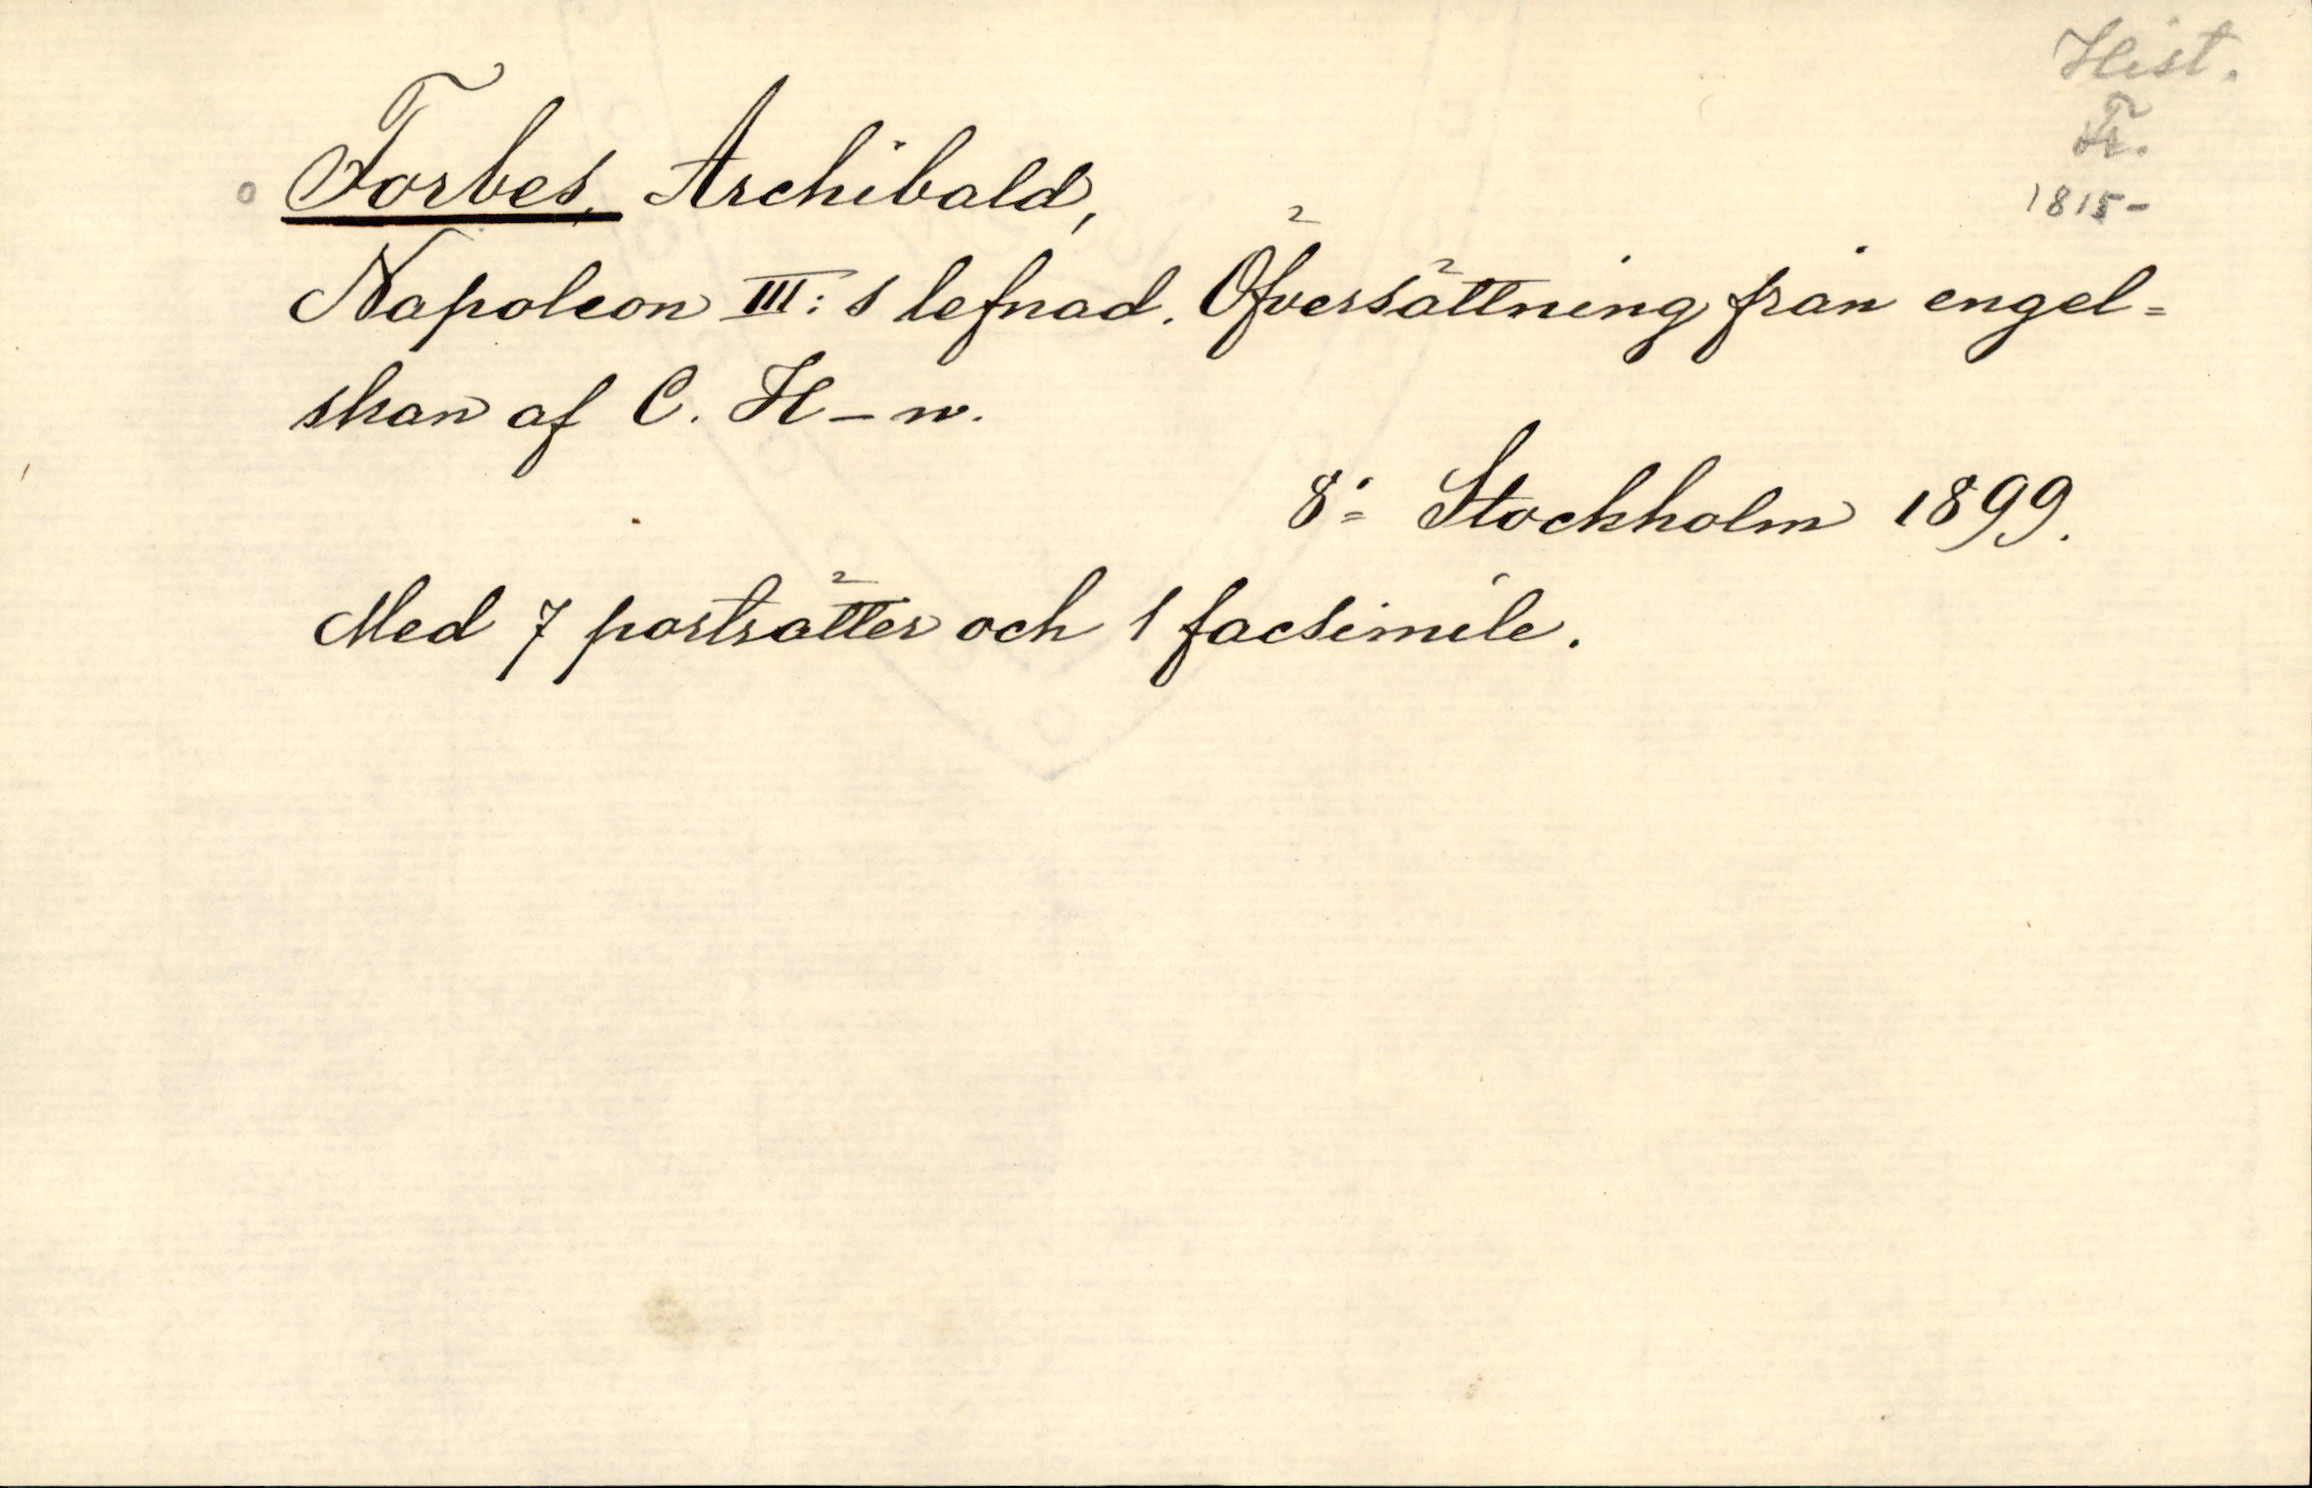 Hist.
Fr.
1815-
Forbes, Archibald,
Napoleon III:s lefnad. Öfversättning från engel=
skan af C. H-w.
8:o Stockholm 1899.
Med 7 porträtter och 1 facsimile.